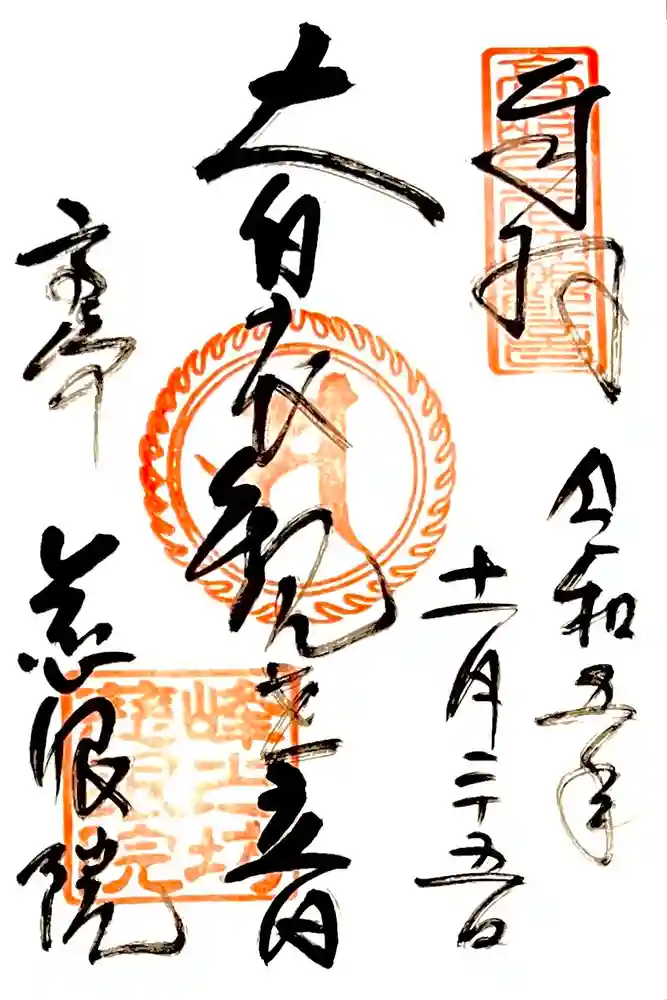 奉拝
令和五年
十一月二十五日
大白衣観世音
高崎
慈眼院
峰之坊
慈眼院